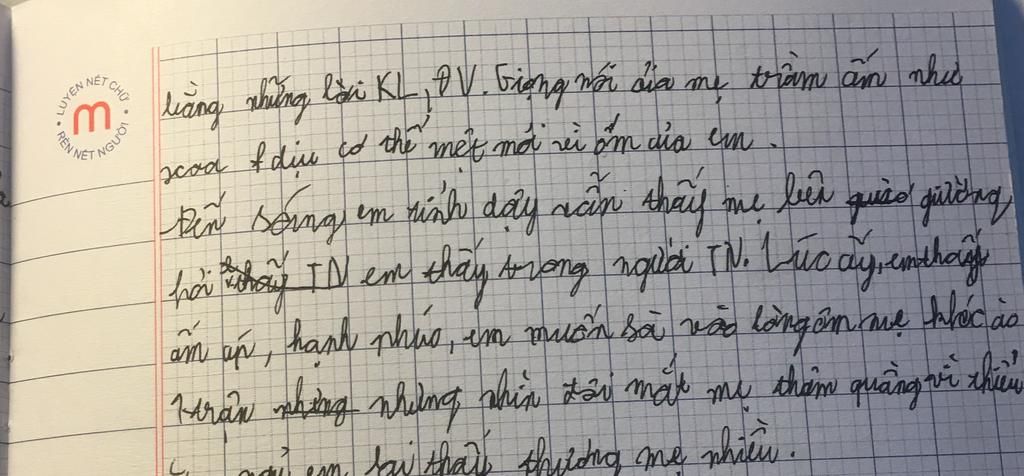 LUYỆN NÉT CHỮ
m
RÈN NÉT NGƯỜI
bằng những lời KL, ĐV. Giọng nói của mẹ trầm ấm như
xoa dịu cơ thể mệt mỏi vì ốm của em.
Đến sáng em tỉnh dậy vẫn thấy mẹ bên giường
hỏi thấy TN em thấy trong người TN. Lúc ấy, em thấy
ấm áp, hạnh phúc, em muốn sà vào lòng ôm mẹ khóc ào
trận những nhưng nhìn mắt mẹ thâm quầng vì thiếu
em lại thấy thương mẹ nhiều.